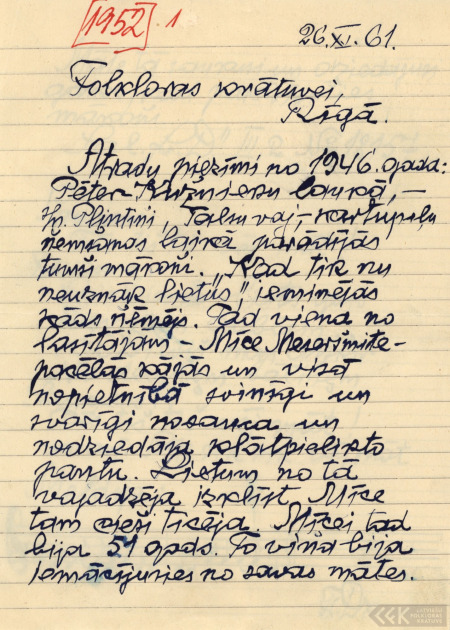 1952. 1
26.XI.61.
Folkloras krātuvei,
Rīgā.
Atradu piezīmi no 1946. gada:
Pēter-Kurznieku laukā, —
Plintiņi, Talsu raj., - kartupeļu
ņemšanas laikā parādījās
tumši mākoņi. „Kad tik nu
neuznāk lietus", ieminējās
kāds ņēmējs. Tad viena no
lasītājām - Mīce Mesersmite -
pacēlās kājās un visā
nopietnībā svinīgi un
svarīgi nosauca un
nodziedāja klātpielikto
pantu. Lietum no tā
vajadzēja izklīst. Mīce
tam cieši ticēja. Mīcei tad
bija 51 gads. To viņa bija
iemācījusies no savas mātes.
LATVIEŠU
FOLKLORAS
KRĀTUVE